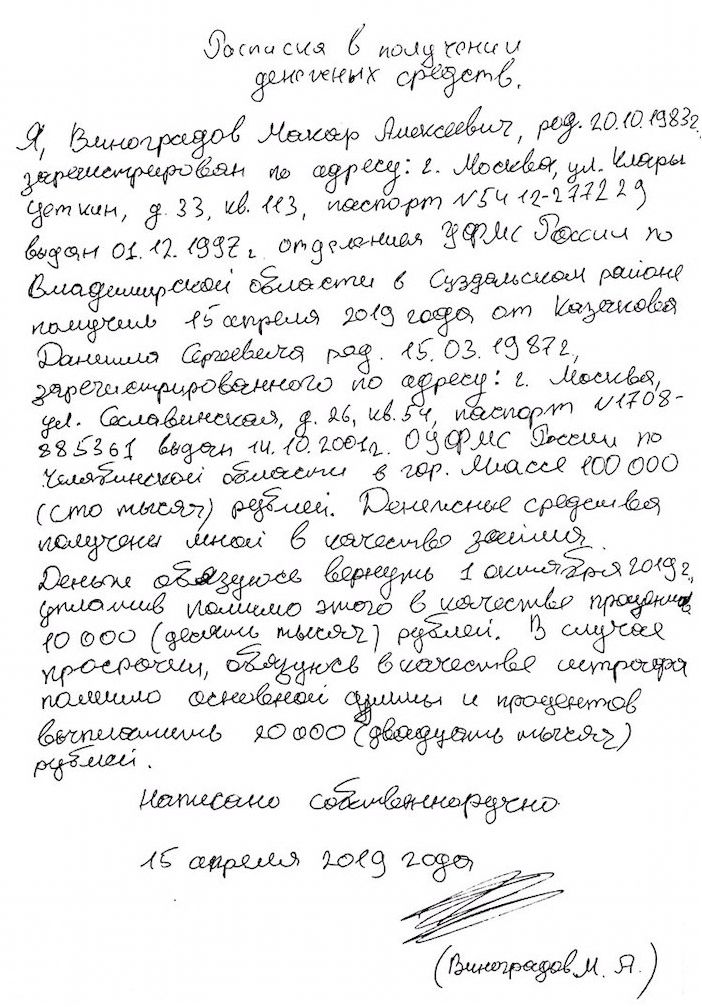 Расписка в получении
денежных средств.
Я, Виноградов Макар Алексеевич, род. 20.10.1983г,
зарегистрирован по адресу: г. Москва, ул. Клары
Цеткин, д. 33, кв. 113, паспорт №5412-277229
выдан 01.12.1997г. отделения УФМС России по
Владимирской области в Суздальском районе
получил 15 апреля 2019 года от Казакова
Даниила Сергеевича род. 15.03.1987г,
зарегистрированного по адресу: г. Москва,
ул. Сославинская, д. 26, кв. 54, паспорт №1708-
885361 выдан 14.10.2001г. ОУФМС России по
Челябинской области в гор. Миассе 100 000
(сто тысяч) рублей. Денежные средства
получены мной в качестве займа.
Деньги обязуюсь вернуть 1 октября 2019г,
уплатив помимо этого в качестве процентов
10 000 (десять тысяч) рублей. В случае
просрочки, обязуюсь в качестве штрафа
помимо основной суммы и процентов
выплатить 20 000 (двадцать тысяч)
рублей.
Написано собственноручно
15 апреля 2019 года
(Виноградов М. А.)